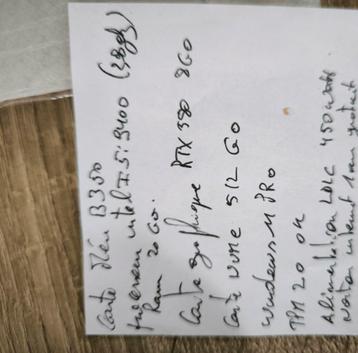 Carte Mère B350
processeur intel I5: 3400 (38gh)
Ram 20 Go.
Carte graphique RTX 380 8GO
Carte NVME 512 GO
Windows 11 PRO
TPM 2.0 OK
Alimentation LDLC 450 watts
Norton internet 1 an gratuit